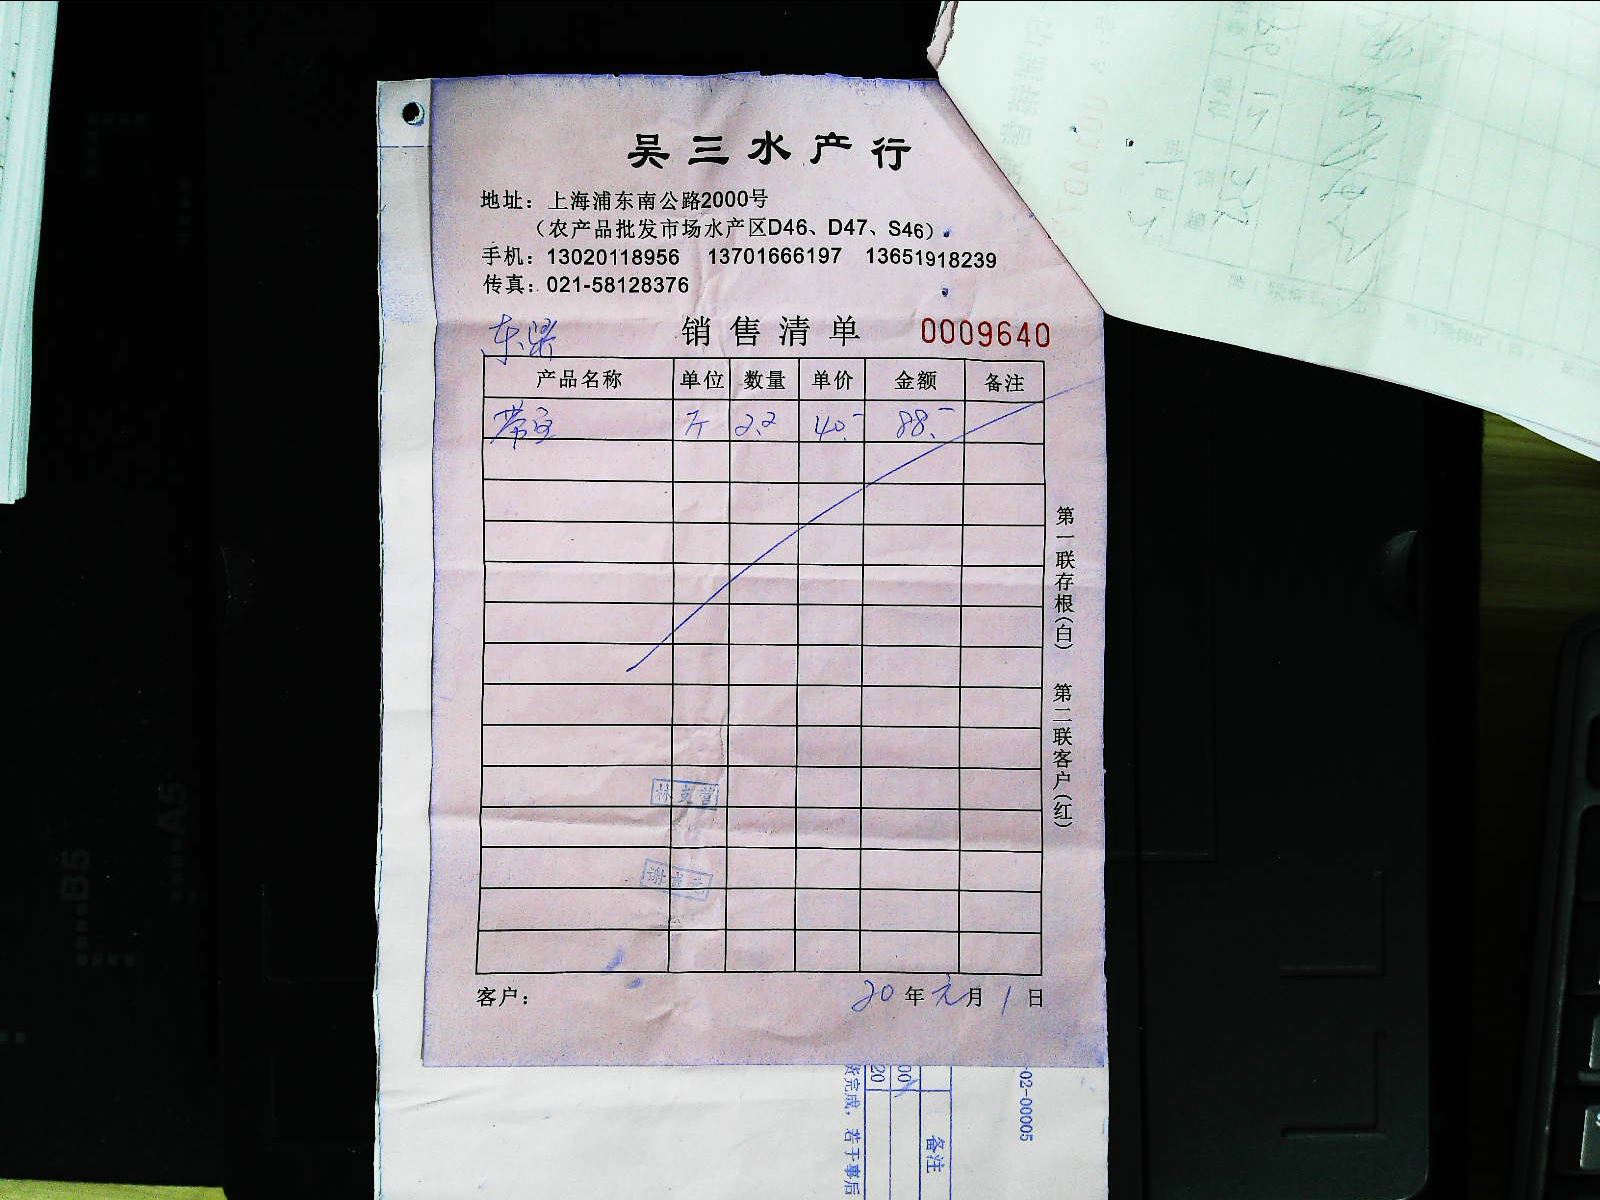 吴三水产行
地址：上海浦东南公路2000号
（农产品批发市场水产区D46、D47、S46）
手机：13020118956 13701666197 13651918239
传真：021-58128376
东
销售清单 0009640
产品名称 单位 数量 单价 金额 备注
带 斤 2.2 40.- 88.-
第一联存根（白） 第二联客户（红）
林 营
谢
客户： 20年元月1日
-02-00005
备注
00
20
货完成，若于事后
B5
A5